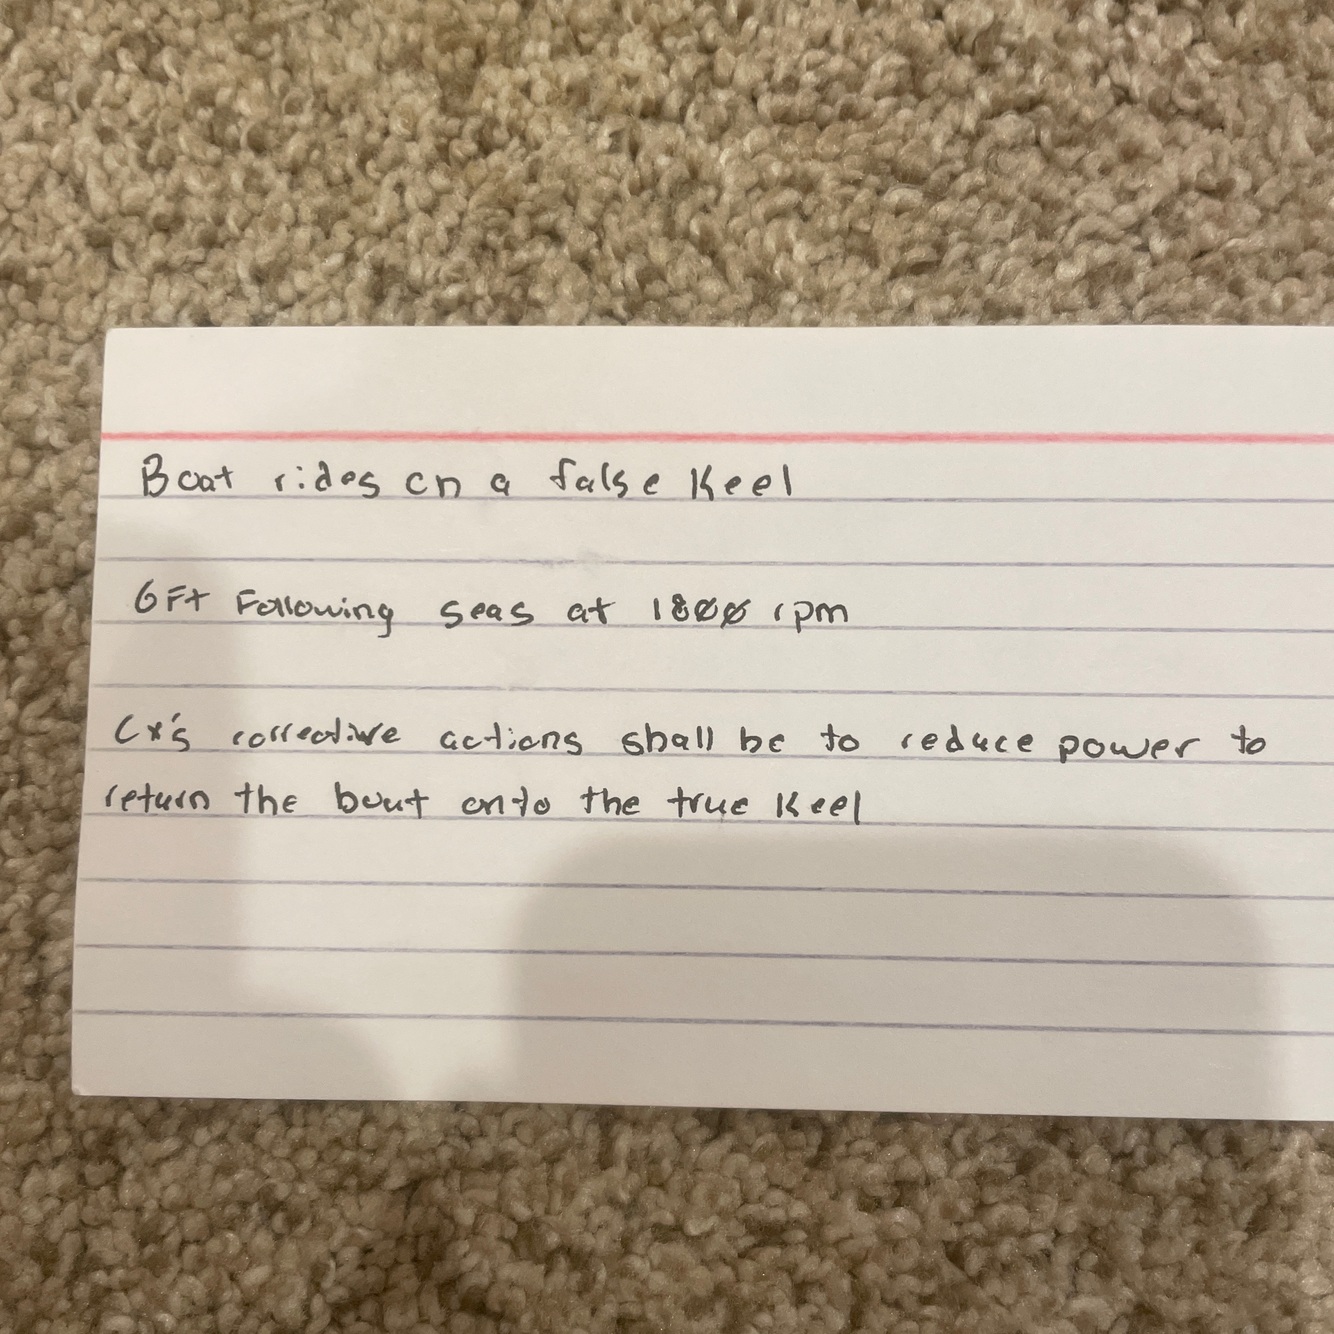 Boat rides on a false Keel
6Ft Following seas at 1800 rpm
Cx's corrective actions shall be to reduce power to
return the boat onto the true Keel